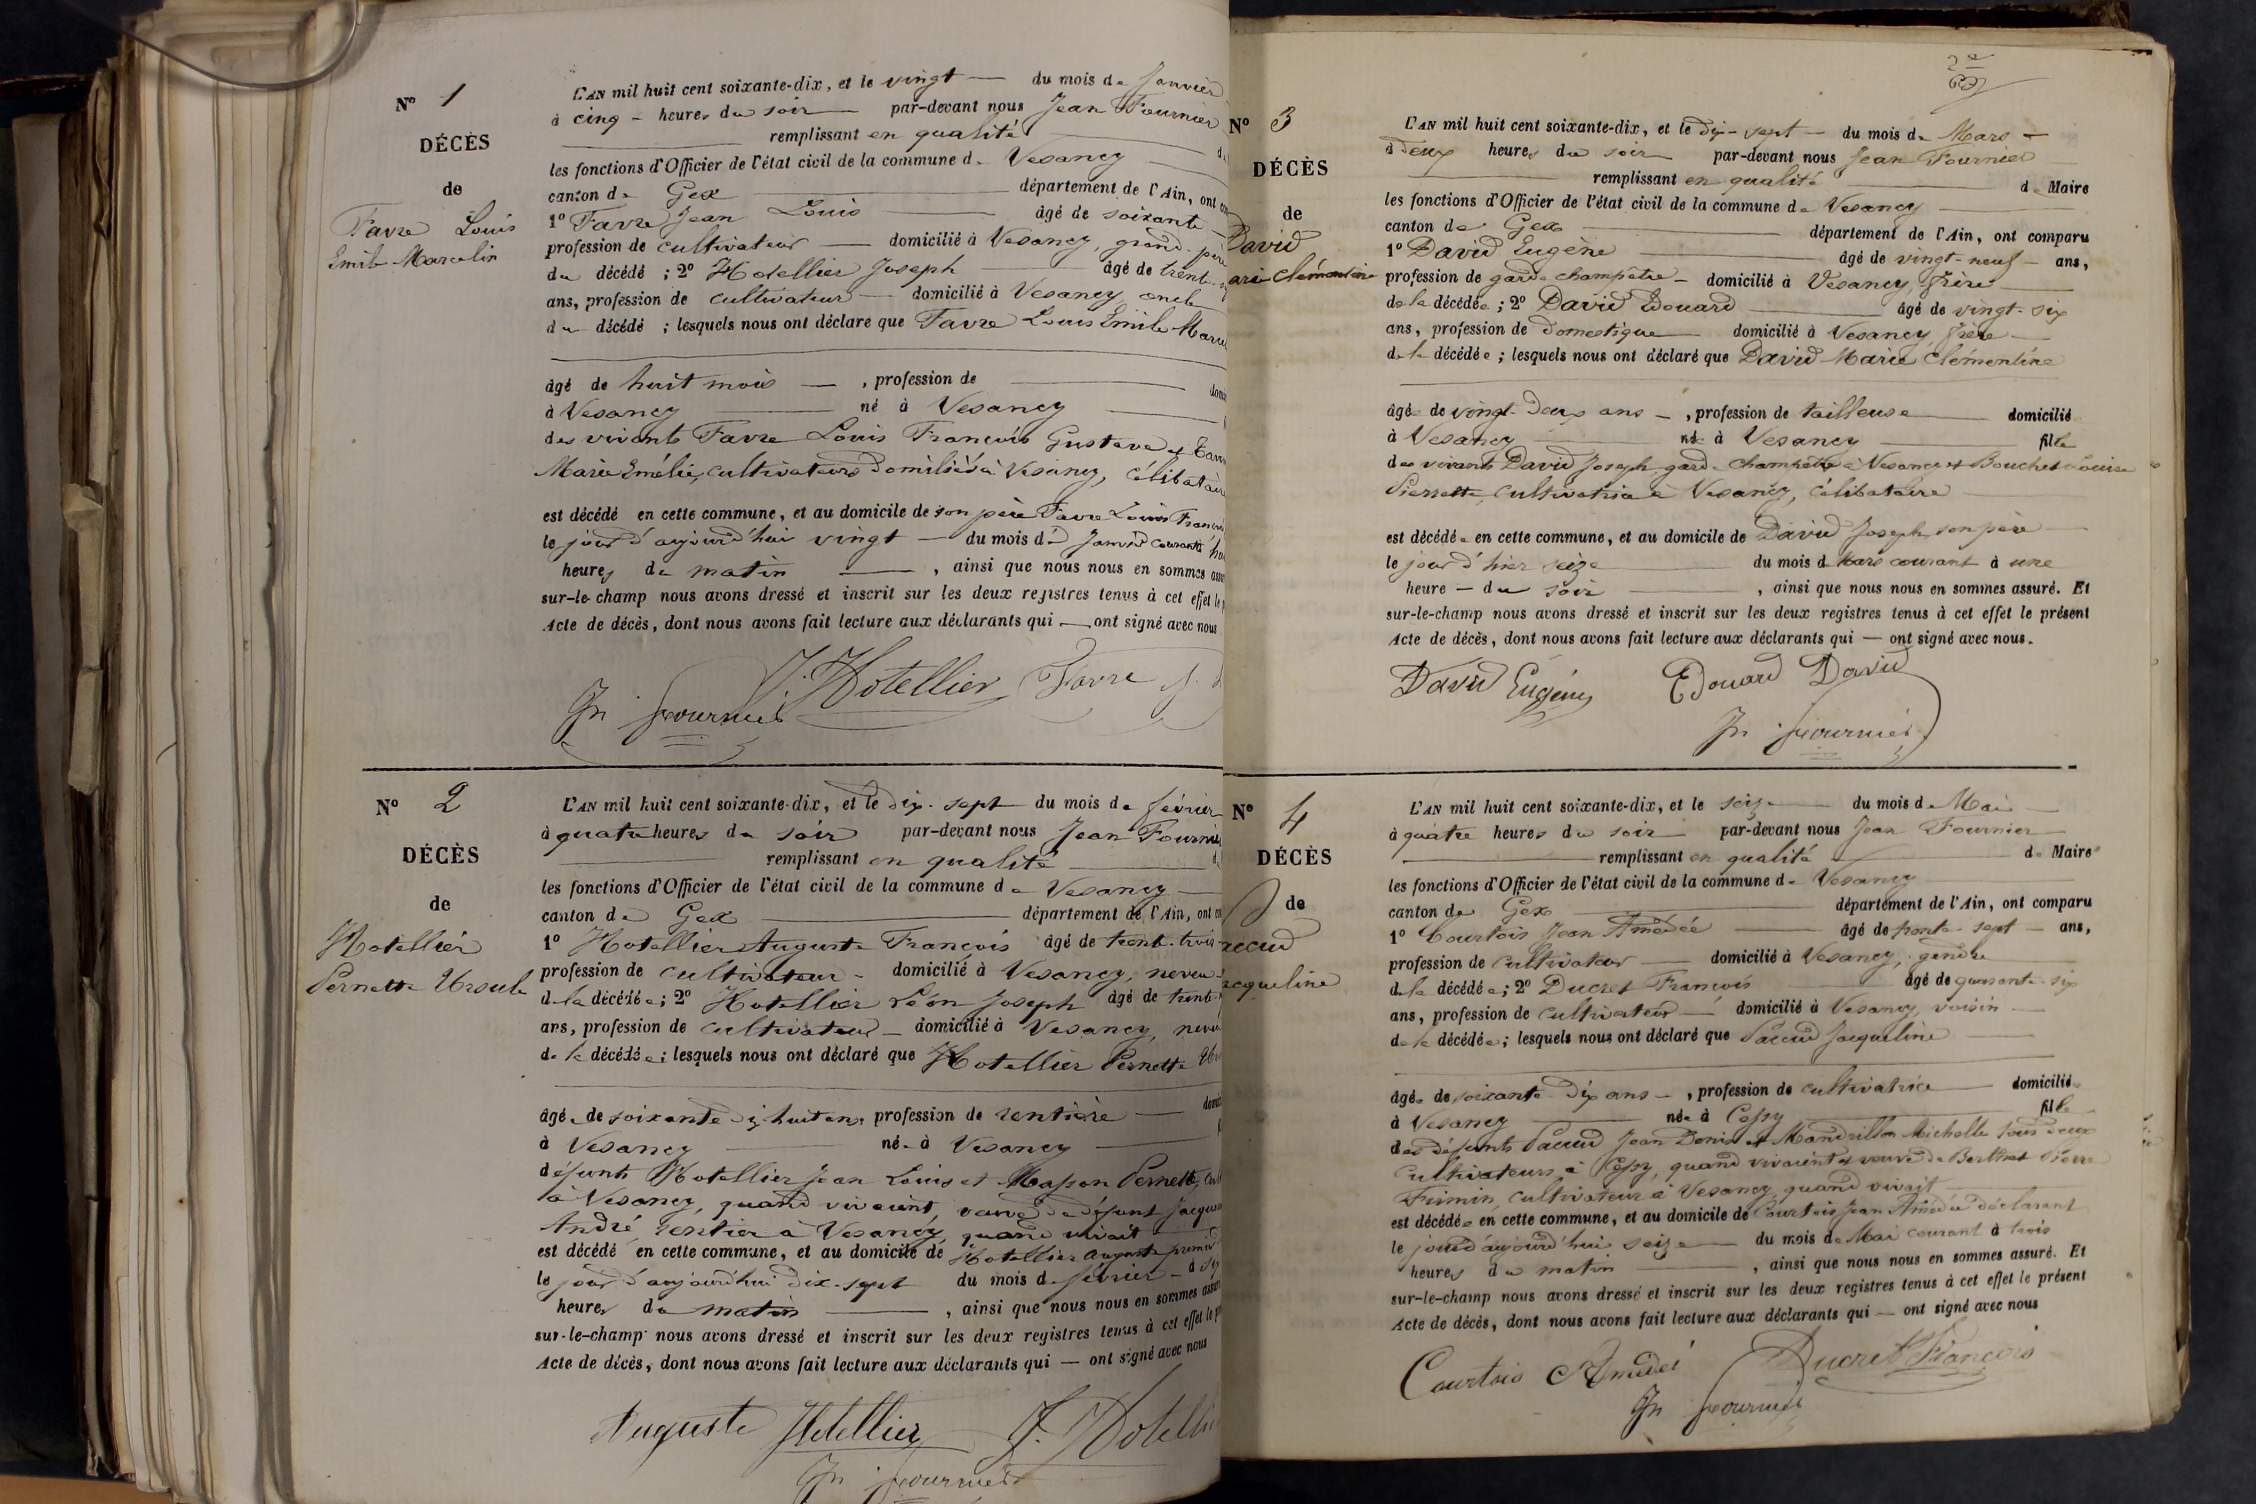 N° 1
DÉCÈS
de
Favre Louis
Emile Marcelin
L'AN mil huit cent soixante-dix, et le vingt — du mois de Janvier
à cinq — heures du soir — par-devant nous Jean Fournier
remplissant en qualité
les fonctions d'Officier de l'état civil de la commune de Vesancy
canton de Gex — département de l'Ain, ont
1° Favre Jean Louis — âgé de soixante
profession de cultivateur — domicilié à Vesancy, grand-père
du décédé ; 2° Hotellier Joseph — âgé de trente
ans, profession de cultivateur — domicilié à Vesancy, oncle
du décédé ; lesquels nous ont déclaré que Favre Louis Emile
âgé de huit mois — , profession de —
à Vesancy — né à Vesancy —
des vivants Favre Louis François Gustave et
Marie Emélie, cultivateurs domiciliés à Vesancy, célibataire
est décédé en cette commune, et au domicile de son père Favre Louis
le jour d'aujourd'hui vingt — du mois de Janvier courant
heures du matin — , ainsi que nous nous en sommes
sur-le-champ nous avons dressé et inscrit sur les deux registres tenus à cet effet le
Acte de décès, dont nous avons fait lecture aux déclarants qui — ont signé avec nous
J. Hotellier Favre J.
Jn Fournier
N° 2
DÉCÈS
de
Hotellier
Pernette Ursule
L'AN mil huit cent soixante-dix, et le dix-sept du mois de février
à quatre heures du soir par-devant nous Jean Fournier
remplissant en qualité
les fonctions d'Officier de l'état civil de la commune de Vesancy
canton de Gex — département de l'Ain, ont
1° Hotellier Auguste François âgé de trente-trois
profession de cultivateur — domicilié à Vesancy, neveu
de la décédée ; 2° Hotellier Léon Joseph âgé de trente
ans, profession de cultivateur — domicilié à Vesancy, neveu
de la décédée ; lesquels nous ont déclaré que Hotellier Pernette
âgée de soixante dix huit ans, profession de rentière —
à Vesancy — née à Vesancy —
défunts Hotellier Jean Louis et Masson Pernette,
à Vesancy, quand vivaient, veuve de défunt
André, rentier à Vesancy, quand vivait
est décédé en cette commune, et au domicile de Hotellier Auguste premier
le jour d'aujourd'hui dix-sept du mois de février — à
heures du matin — , ainsi que nous nous en sommes
sur-le-champ nous avons dressé et inscrit sur les deux registres tenus à cet effet le
Acte de décès, dont nous avons fait lecture aux déclarants qui — ont signé avec nous
Auguste Hotellier J.
Jn Fournier
N° 3
DÉCÈS
de
David
Clémentine
L'AN mil huit cent soixante-dix, et le dix-sept — du mois de Mars —
à deux heures du soir par-devant nous Jean Fournier
remplissant en qualité — de Maire
les fonctions d'Officier de l'état civil de la commune de Vesancy
canton de Gex — département de l'Ain, ont comparu
1° David Eugène — âgé de vingt-neuf — ans,
profession de garde champêtre — domicilié à Vesancy, frère
de la décédée ; 2° David Edouard — âgé de vingt-six
ans, profession de domestique — domicilié à Vesancy, frère
de la décédée ; lesquels nous ont déclaré que David Marie Clémentine
âgée de vingt-deux ans — , profession de tailleuse — domiciliée
à Vesancy — née à Vesancy — fille
des vivants David Joseph garde champêtre à Vesancy et Bouchet Louise
Pierrette, cultivatrice à Vesancy, célibataire
est décédée en cette commune, et au domicile de David Joseph son père
le jour d'hier seize — du mois de Mars courant à une
heure — du soir — , ainsi que nous nous en sommes assuré. Et
sur-le-champ nous avons dressé et inscrit sur les deux registres tenus à cet effet le présent
Acte de décès, dont nous avons fait lecture aux déclarants qui — ont signé avec nous.
David Eugène Edouard David
Jn Fournier
N° 4
DÉCÈS
de
L'AN mil huit cent soixante-dix, et le seize — du mois de Mai —
à quatre heures du soir — par-devant nous Jean Fournier
remplissant en qualité — de Maire
les fonctions d'Officier de l'état civil de la commune de Vesancy
canton de Gex — département de l'Ain, ont comparu
1° Courtois Jean Amédée — âgé de trente-sept — ans,
profession de cultivateur — domicilié à Vesancy, gendre
de la décédée ; 2° Ducret François — âgé de quarante-six
ans, profession de cultivateur — domicilié à Vesancy, voisin
de la décédée ; lesquels nous ont déclaré que Jacqueline
âgée de soixante-dix ans — , profession de cultivatrice — domiciliée
à Vesancy — née à Cessy — fille
des défunts Jean Denis et Mandrillon Michelle tous deux
cultivateurs à Cessy, quand vivaient et veuve de Berthet Pierre
Firmin, cultivateur à Vesancy, quand vivait
est décédée en cette commune, et au domicile de Courtois Jean Amédée déclarant
le jour d'aujourd'hui seize — du mois de Mai courant à trois
heures du matin — , ainsi que nous nous en sommes assuré. Et
sur-le-champ nous avons dressé et inscrit sur les deux registres tenus à cet effet le présent
Acte de décès, dont nous avons fait lecture aux déclarants qui — ont signé avec nous
Courtois Amédéé Ducret François
Jn Fournier